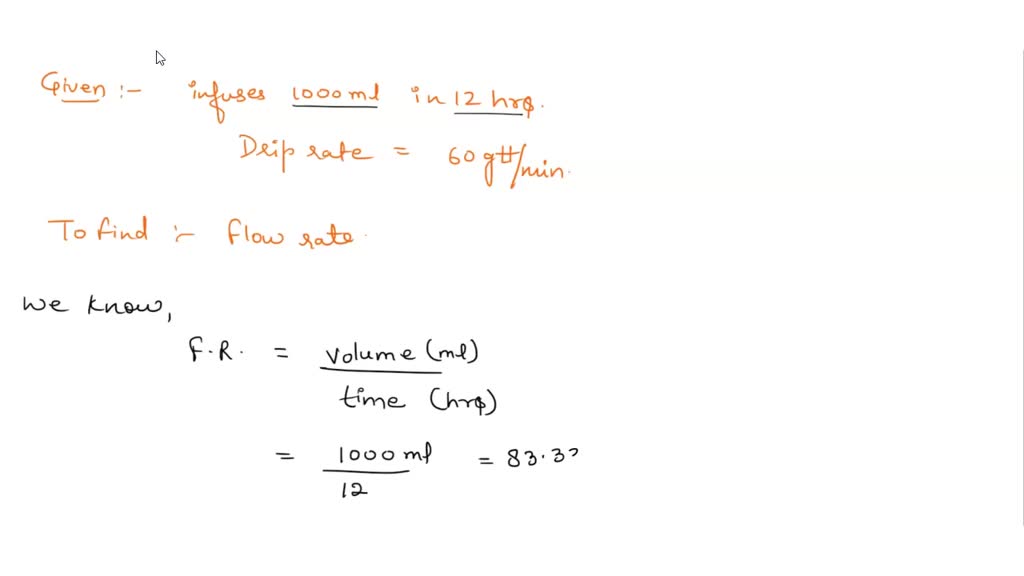 Given :- infuses 1000 ml in 12 hrs.
Drip rate = 60 gtt/min.
To find :- flow rate.
We know,
F.R. = volume (ml)
time (hrs)
= 1000 ml = 83.33
12